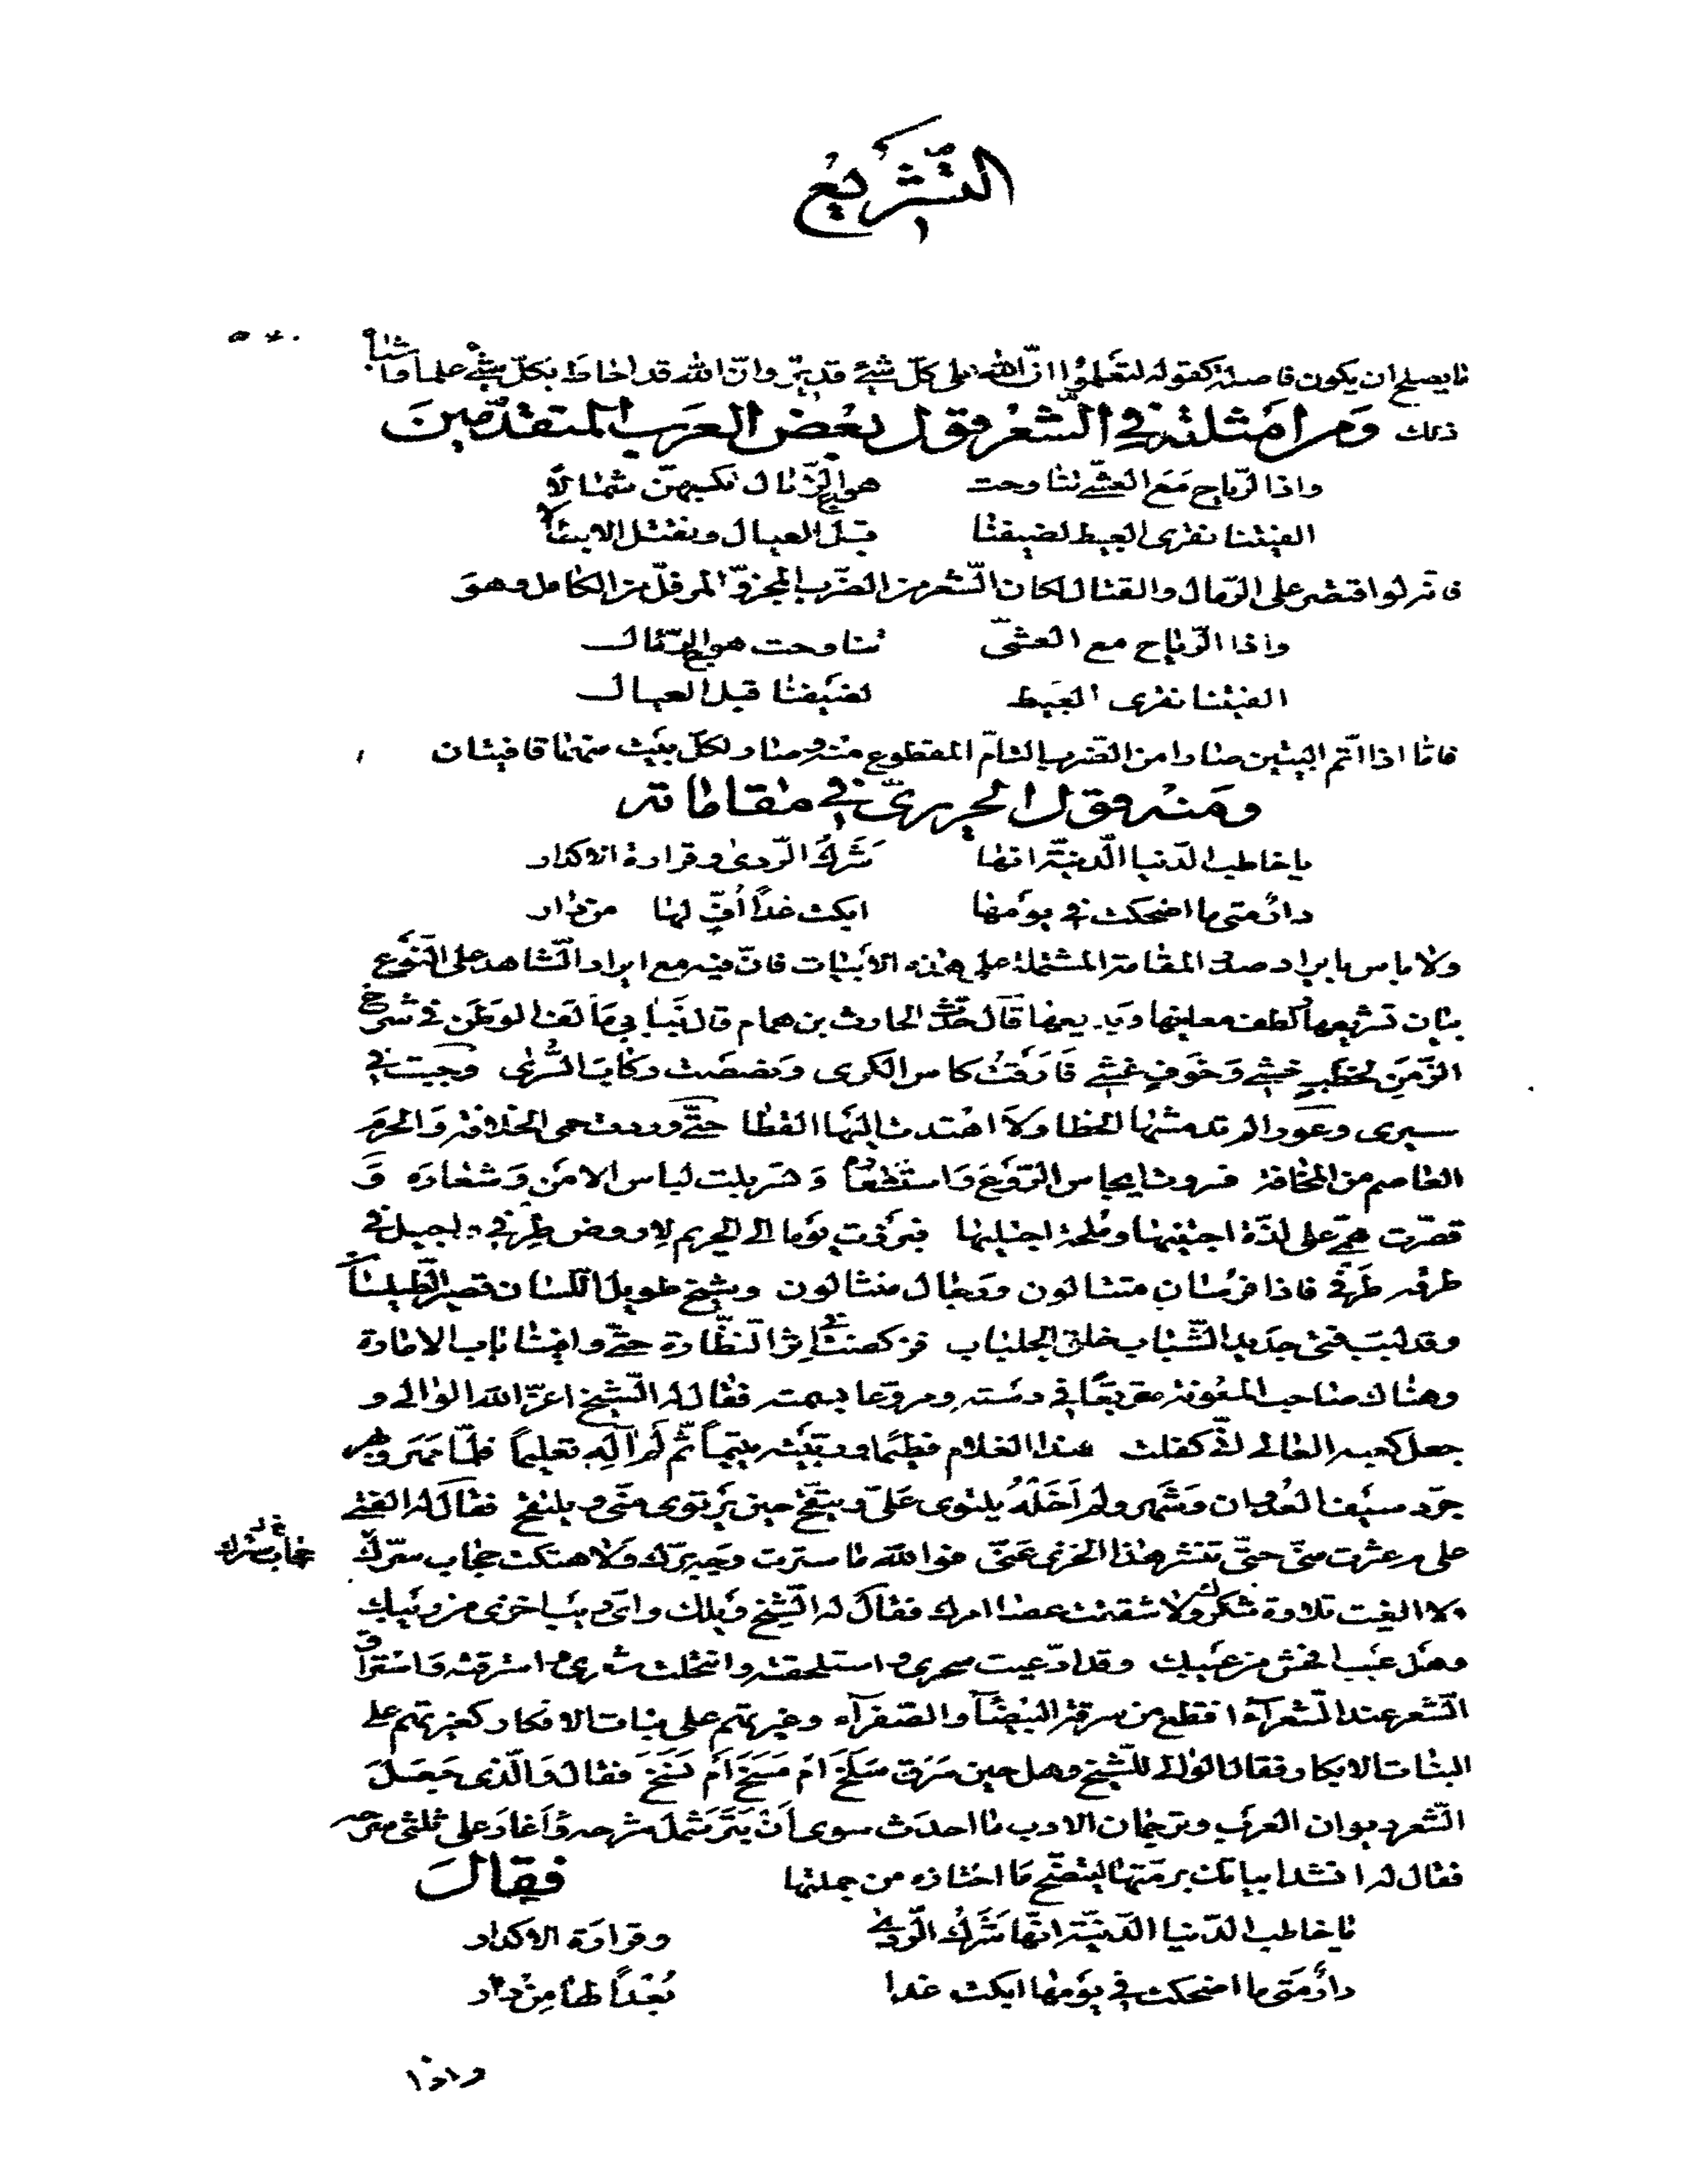 التشريع
ما يصلح ان يكون فاصلة كقوله لتعلموا انّ الله على كلّ شئ قدير وانّ الله قد احاط بكلّ شئ علما وما شابه
ذلك ومن امثلته في الشعر قول بعض العرب المتقدّمين
واذا الرّياح مع العشّي تناوحت هوج الرّمال نكبهنّ شمالا
الفيتنا نفرى العبيط لضيفنا قبل العيال ونقتل الابطالا
فانّه لو اقتصر على الرّمال والقتال لكان الشعر من الضّرب المجزوّ المرفّل من الكامل وهو
واذا الرّياح مع العشىّ تناوحت هوج الرّمال
الفيتنا نفرى العبيط لضيفنا قبل العيال
فامّا اذا اتّم البيتين صارا من الضّرب التامّ المقطوع منه وصار لكلّ بيت منهما قافيتان
ومنه قول الحريرىّ في مقاماته
يا خاطب الدّنيا الدّنيّة انها شرك الرّدى وقرارة الاكدار
دار متى ما اضحكت في يومها ابكت غداً أفّ لها من دار
ولا باس بايراد صدر المقامة المشتملة على هذه الأبيات فانّ فيه مع ايراد الشاهد على النّوع
بيان تشريعها لطف معانيها وبديعها قال حدّث الحارث بن همام قال نبا بي مألف الوطن في شرخ
الزّمن لخطب خشي وخوف غشي فأرقت كاس الكرى ونصصت ركاب السّرى وجبت في
سيرى وعورا لم تدمثها الخطا ولا اهتدت اليها القطا حتّى وردت حمى الخلافة والحرم
العاصم من المخافة فسروت ايجاس الرّوع واستشعاره وتسربلت لباس الامن وشعاره و
قصرت همّي على لذّة اجتنيها وملحة اجتليها فبرزت يوما الى الحريم لاروض طرفي واجيل في
طرقه طرفي فاذا فرسان متتالون ورجال منثالون وشيخ طويل اللّسان قصير الطّيلسان
وقد لبّب فتى جديد الشّباب خلق الجلباب فركضت في اثر النظّارة حتّى وافينا باب الامارة
وهناك صاحب المعونة متربّعاً في دسته ومروّعا بسمته فقال له الشّيخ اعزّ الله الوالى و
جعل كعبه العالى انّى كفلت هذا الغلام فطيماً وربّيته يتيماً ثمّ لم آله تعليماً فلمّا مهر وبهر
جرّد سيف العدوان وشهر ولم أخله يلتوى علىّ ويتّقح حين يرتوى منّى ويلتقح فقال له الفتى
على م عثرت منّى حتّى تنشر هذا الخزى عنّى فوالله ما سترت وجه برّك ولا هتكت حجاب سترك
ولا الغيت تلاوة شكرك ولا شققت عصا امرك فقال له الشّيخ ويلك واىّ ريب اخزى من ريبك
وهل عيب افحش من عيبك وقد ادّعيت سحرى واستلحقته وانتحلت شعرى واسترقته واستراق
الشّعر عند الشّعرآء افظع من سرقة البيضآء والصّفرآء وغيرتهم على بنات الافكار كغيرتهم على
البنات الابكار فقال الوالى للشّيخ وهل حين سرق سلخ ام مسخ أم نسخ فقال والّذى جعل
الشّعر ديوان العرب وترجمان الادب ما احدث سوى أن بتر شمل شرحه وأغار على ثلثى سرحه
فقال له انشد ابياتك برمّتها ليتّضح ما احتازه من جملتها فقال
يا خاطب الدّنيا الدّنيّة انّها شرك الرّدى وقرارة الاكدار
دار متى ما اضحكت في يومها ابكت غدا بعداً لها من دار
واذا